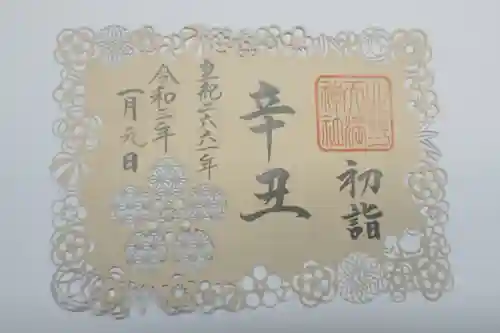 北野
天満
神社
初詣
辛丑
皇紀二六八一年
令和三年
一月元日